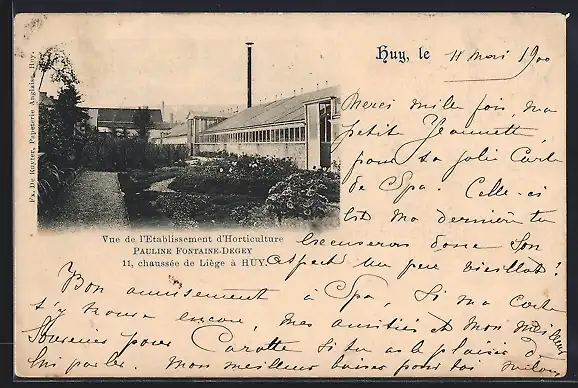 Huy, le 11 Mai 1900
Merci mille fois, ma
petite Jeannette,
pour ta jolie Carte
de Spa. Celle-ci
est ma dernière tu
excuseras donc son
aspect un peu vieillot!
Bon amusement à Spa, Si ma carte
t'y trouve encore, mes amitiés et mon meilleur
souvenir pour Carotte si tu as le plaisir d
lui parler. Mon meilleur baiser pour toi
Vue de l'Etablissement d'Horticulture
PAULINE FONTAINE-DEGEY
11, chaussée de Liége à HUY.
Fx. De Ruyter, Papeterie Anglaise, Huy.